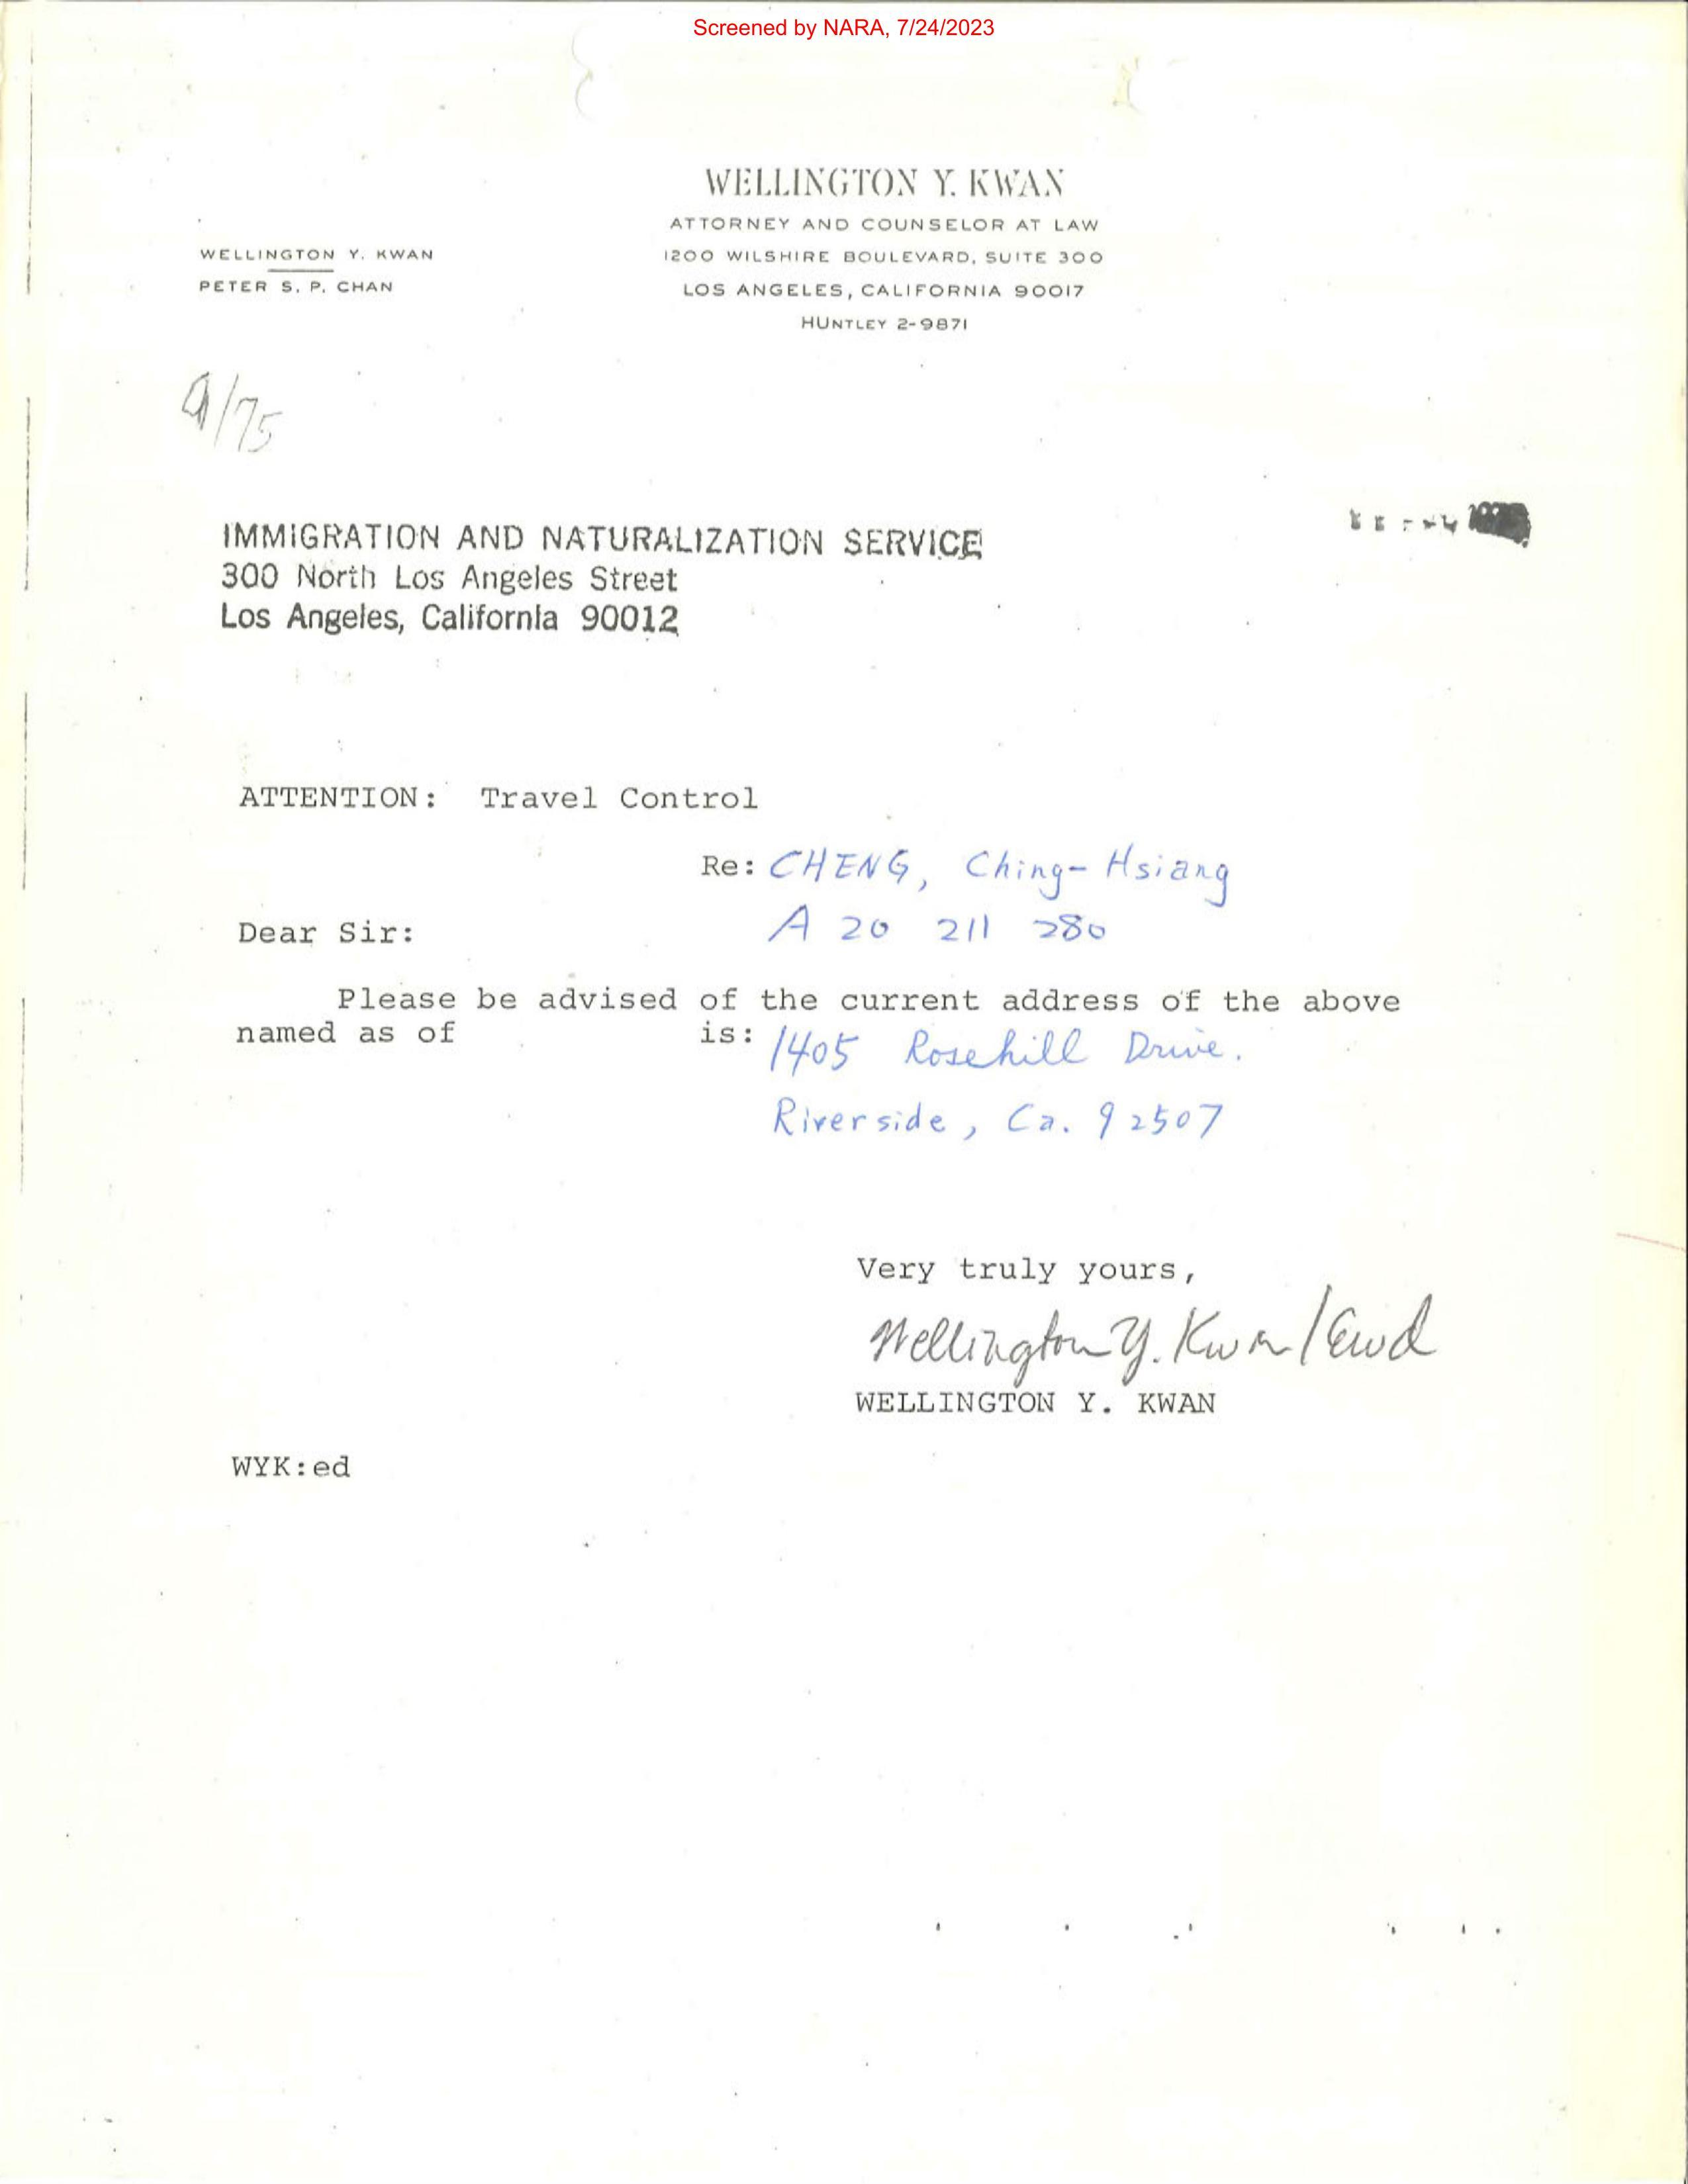 Screened by NARA, 7/24/2023
WELLINGTON Y. KWAN
ATTORNEY AND COUNSELOR AT LAW
1200 WILSHIRE BOULEVARD, SUITE 300
LOS ANGELES, CALIFORNIA 90017
HUNTLEY 2-9871
WELLINGTON Y. KWAN
PETER S. P. CHAN
9/75
IMMIGRATION AND NATURALIZATION SERVICE
300 North Los Angeles Street
Los Angeles, California 90012
ATTENTION: Travel Control
Re: CHENG, Ching-Hsiang
A 20 211 280
Dear Sir:
Please be advised of the current address of the above
named as of is: 1405 Rosehill Drive.
Riverside, Ca. 92507
Very truly yours,
Wellington Y. Kwan
WELLINGTON Y. KWAN
WYK:ed